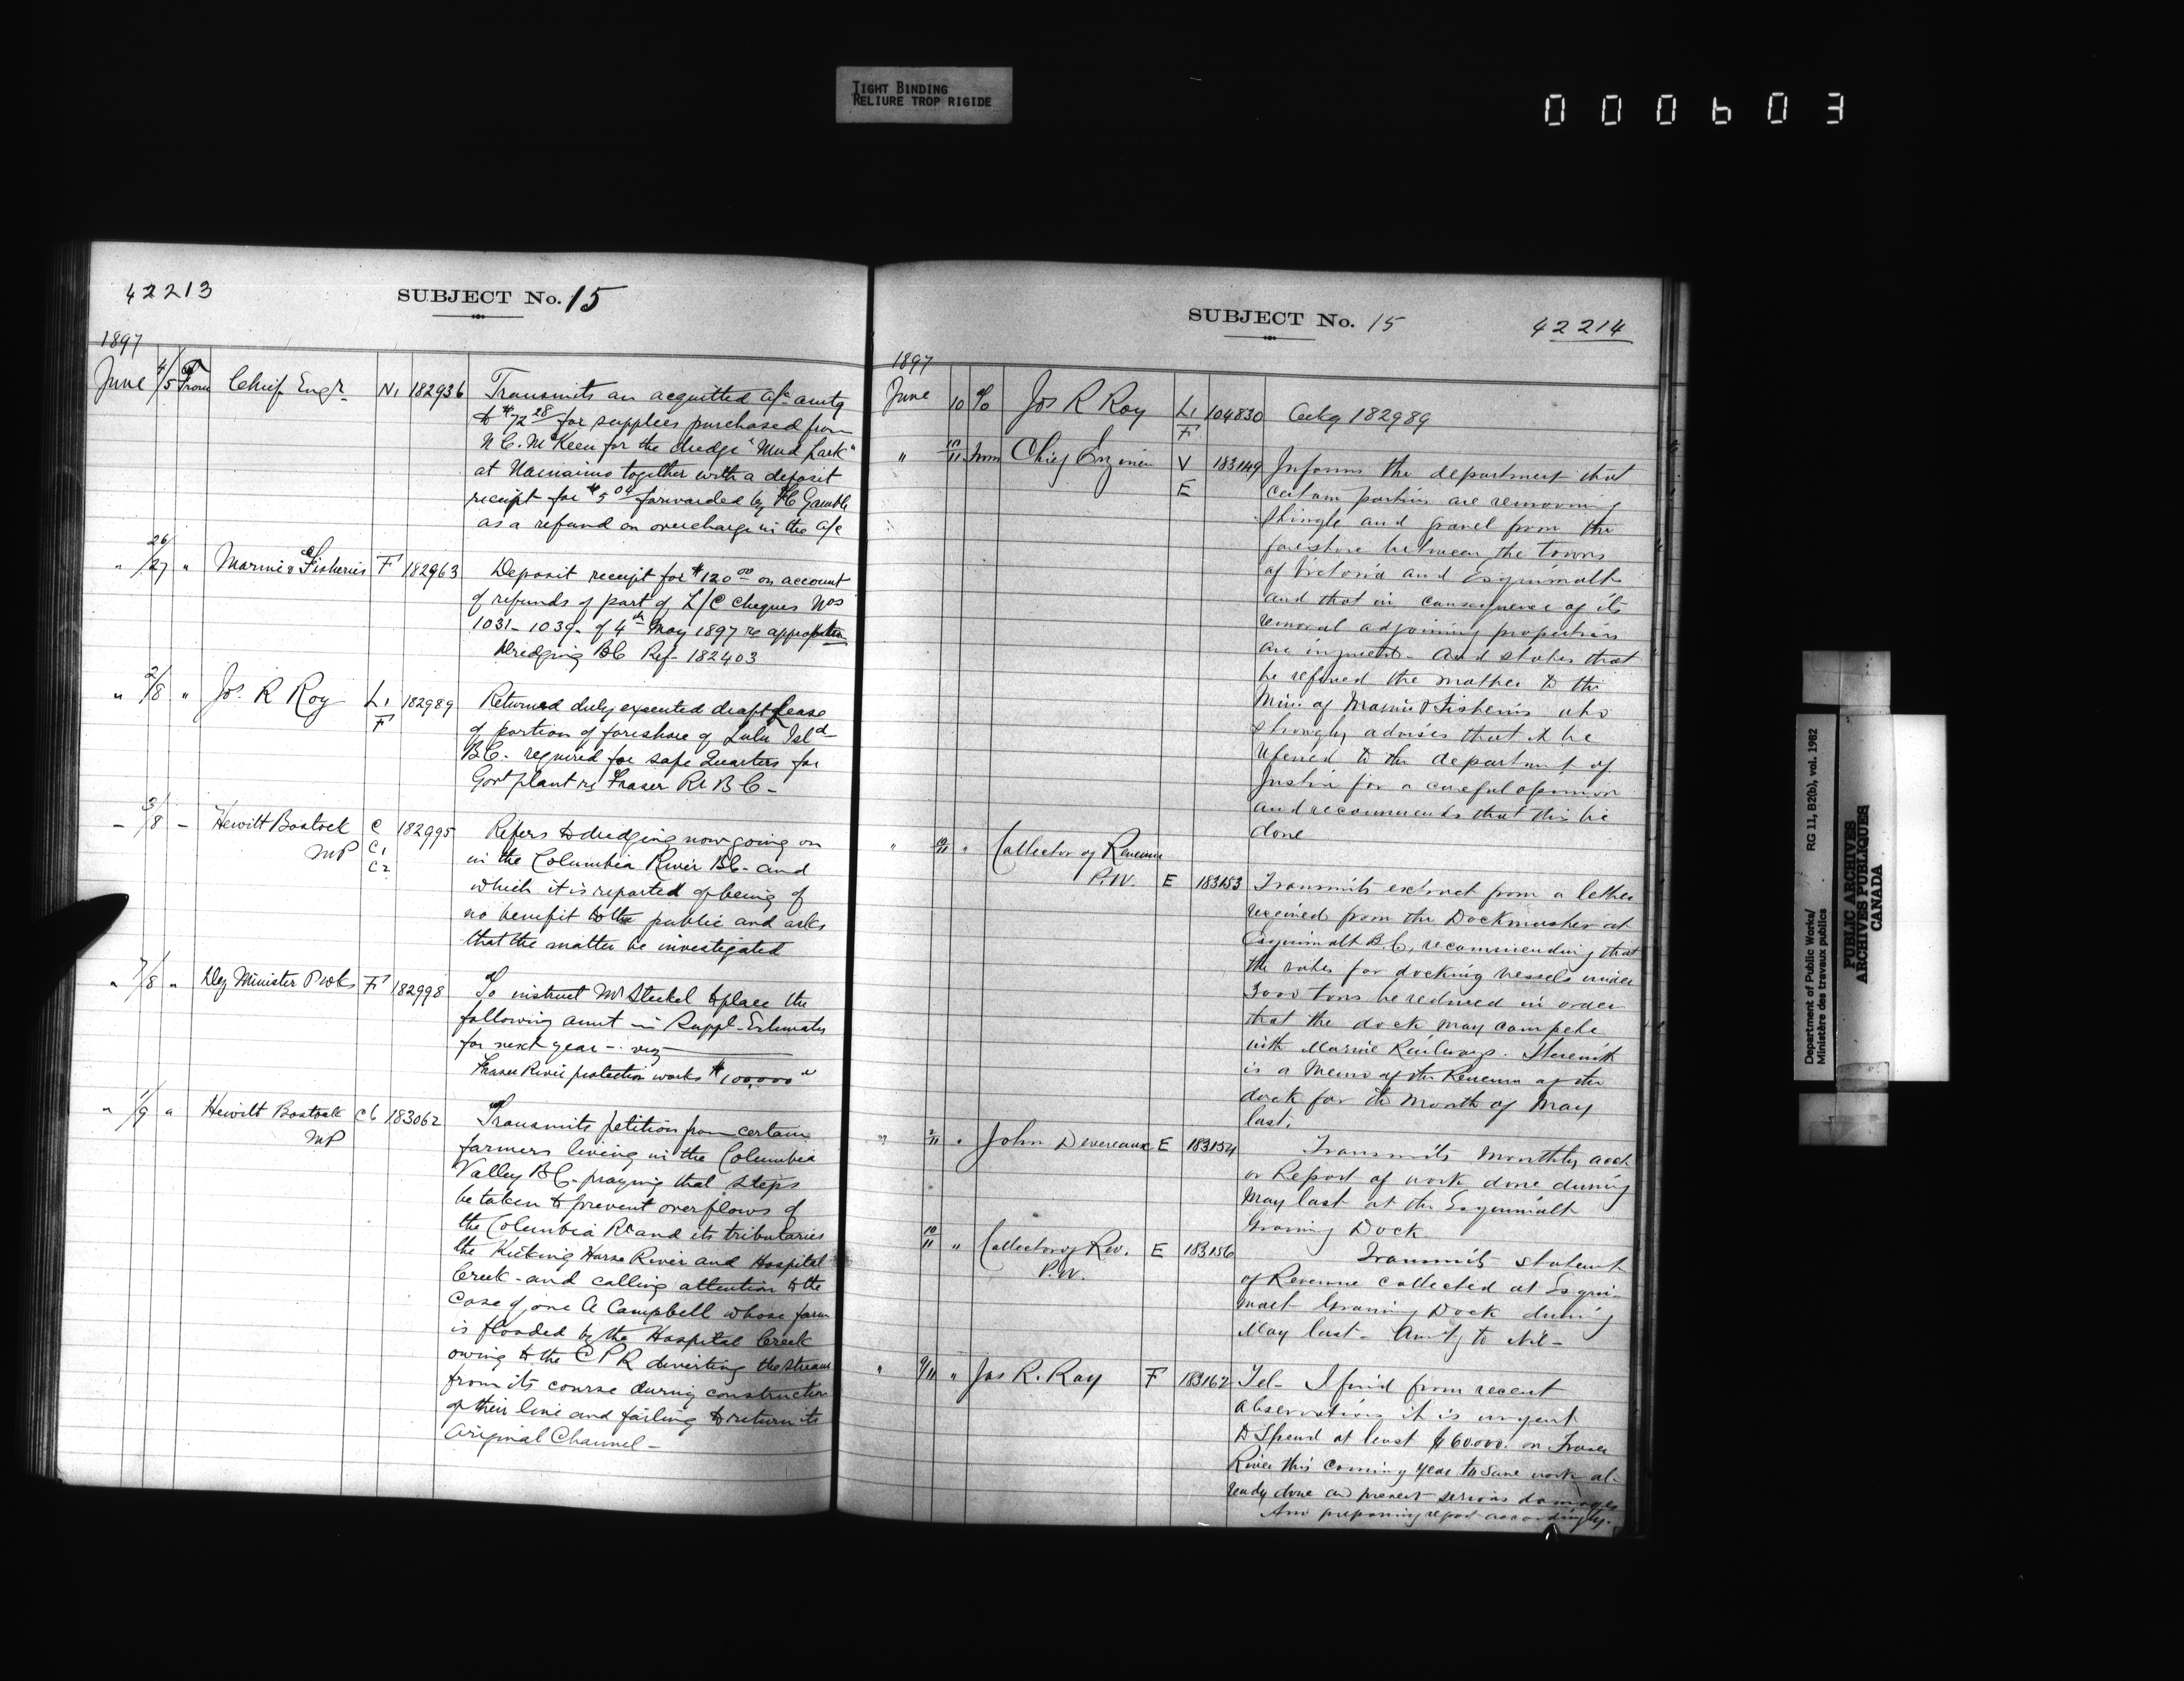 TIGHT BINDING
RELIURE TROP RIGIDE
000603
42213
SUBJECT No. 15
1897
June 4/5 From Chief Engr N1 182936 Transmits an acquitted a/c amtg
to $72.28 for supplies purchased from
N C. McKeen for the dredge "Mud Lark"
at Nanaimo together with a deposit
receipt for $5.04 forwarded by F C Gamble
as a refund on overcharge in the a/c
" 26/27 " Marine & Fisheries F 182963 Deposit receipt for $120.00 on account
of refunds of part of L/C cheques Nos
1031-1039- of 4th May 1897 re
Dredging BC Ref- 182403
" 2/8 " Jos. R Roy L1 F 182989 Returned duly executed draft lease
of portion of foreshore of Lulu Isld
B.C. required for safe Quarters for
Govt plant re Fraser Rr B C -
- 3/8 - Hewitt Bostock MP C C1 C2 182995 Refers to dredging now going on
in the Columbia River BC- and
which it is reported of being of
no benefit to the public and asks
that the matter be investigated
" 7/8 " Dey Minister P wks F 182998 To instruct Mr Steckel to place the
following amt in Suppl- Estimates
for next year - viz
Fraser River protection works $100,000
" 1/9 " Hewitt Bostock MP C6 183062 Transmits petition from certain
farmers living in the Columbia
Valley B C- praying that steps
be taken to prevent overflows of
the Columbia Rr and its tributaries
the Kicking Horse River and Hospital
Creek - and calling attention to the
case of one A Campbell whose farm
is flooded by the Hospital Creek
owing to the C P R diverting the stream
from its course during construction
of their line and failing to return its
Original Channel -
SUBJECT No. 15
42214
1897
June 10 To Jos R Roy L1 F 104830 Ackg 182989
" 10/11 From Chief Engineer V E 183149 Informs the department that
certain parties are removing
shingle and gravel from the
foreshore between the towns
of Victoria and Esquimalt
and that in consequence of its
removal adjoining properties
are injured - and states that
he refered the matter to the
Min. of Marine & Fisheries who
strongly advises that it be
refered to the department of
Justice for a careful opinion
and recommends that this be
done
" 10/11 " Collector of Revenue
P.W. E 183153 Transmits extract from a letter
received from the Dockmaster at
Esquimalt B.C, recommending that
the rates for docking vessels under
3000 tons be reduced in order
that the dock may compete
with Marine Railways. Herewith
is a Memo of the Revenue of the
dock for the month of May
last.
" 2/11 " John Devereaux E 183154 Transmits monthly acct
or Report of work done during
May last at the Esquimalt
Graving Dock
10/11 " Collector of Rev.
P.W. E 183156 Transmits statement
of Revenue collected at Esqui-
malt Graving Dock during
May last - Amtg to Nil -
" 9/11 " Jos R. Roy F 183162 Tel- I find from recent
observations it is urgent
to Spend at least $60.000. on Fraser
River this coming year to save work al-
ready done and prevent serious damages
Am preparing report accordingly.
Department of Public Works/
Ministère des travaux publics
RG 11, B2(b), vol. 1982
PUBLIC ARCHIVES
ARCHIVES PUBLIQUES
CANADA